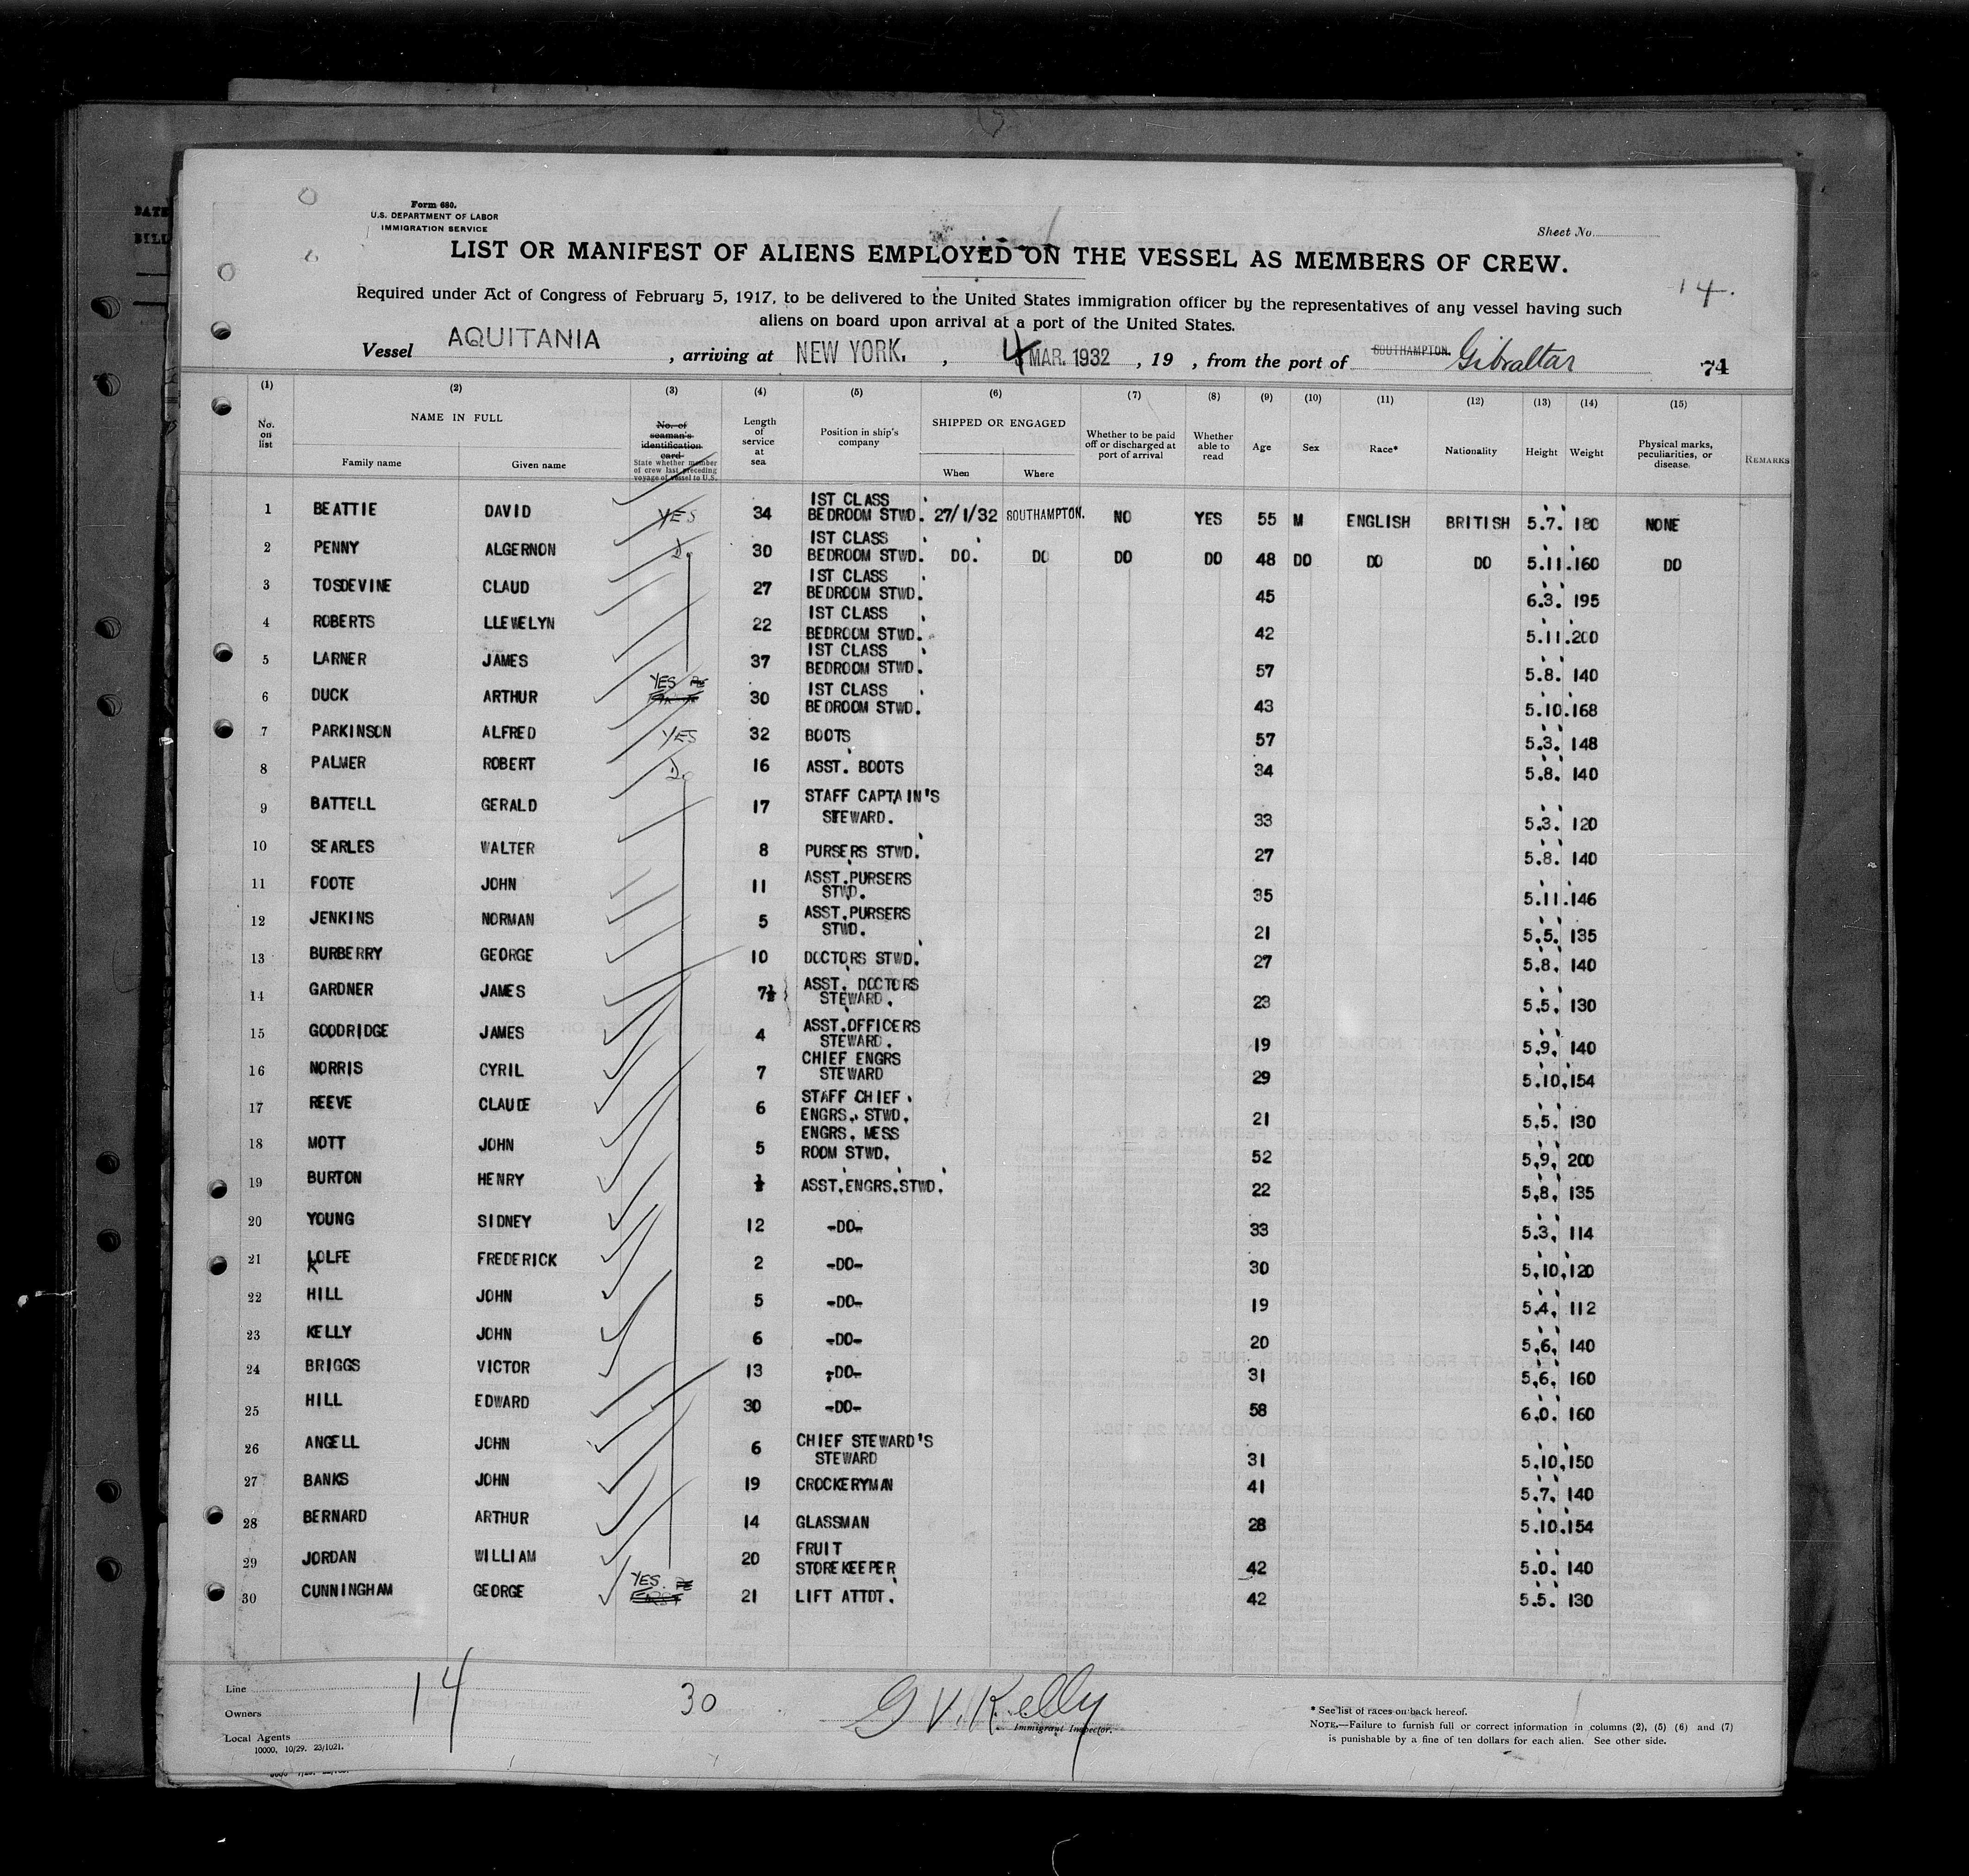 Form 680.
U.S. DEPARTMENT OF LABOR
IMMIGRATION SERVICE
Sheet No.
LIST OR MANIFEST OF ALIENS EMPLOYED ON THE VESSEL AS MEMBERS OF CREW.
14.
Required under Act of Congress of February 5, 1917, to be delivered to the United States immigration officer by the representatives of any vessel having such
aliens on board upon arrival at a port of the United States.
Vessel AQUITANIA, arriving at NEW YORK., 4 MAR. 1932, 19 , from the port of SOUTHAMPTON. Gibraltar 74
(1) (2) (3) (4) (5) (6) (7) (8) (9) (10) (11) (12) (13) (14) (15)
No. on list
NAME IN FULL
Family name Given name
No. of seaman's identification card
State whether member of crew last preceding voyage of vessel to U.S.
Length of service at sea
Position in ship's company
SHIPPED OR ENGAGED
When Where
Whether to be paid off or discharged at port of arrival
Whether able to read
Age Sex Race* Nationality Height Weight
Physical marks, peculiarities, or disease
REMARKS
1 BEATTIE DAVID YES 34 1ST CLASS BEDROOM STWD. 27/1/32 SOUTHAMPTON. NO YES 55 M ENGLISH BRITISH 5.7. 180 NONE
2 PENNY ALGERNON Do 30 1ST CLASS BEDROOM STWD. DO. DO DO DO 48 DO DO DO 5.11. 160 DO
3 TOSDEVINE CLAUD 27 1ST CLASS BEDROOM STWD. 45 6.3. 195
4 ROBERTS LLEWELYN 22 1ST CLASS BEDROOM STWD. 42 5.11. 200
5 LARNER JAMES 37 1ST CLASS BEDROOM STWD. 57 5.8. 140
6 DUCK ARTHUR YES 30 1ST CLASS BEDROOM STWD. 43 5.10. 168
7 PARKINSON ALFRED YES 32 BOOTS 57 5.3. 148
8 PALMER ROBERT Do 16 ASST. BOOTS 34 5.8. 140
9 BATTELL GERALD 17 STAFF CAPTAIN'S STEWARD. 33 5.3. 120
10 SEARLES WALTER 8 PURSERS STWD. 27 5.8. 140
11 FOOTE JOHN 11 ASST. PURSERS STWD. 35 5.11. 146
12 JENKINS NORMAN 5 ASST. PURSERS STWD. 21 5.5. 135
13 BURBERRY GEORGE 10 DOCTORS STWD. 27 5.8. 140
14 GARDNER JAMES 7½ ASST. DOCTORS STEWARD. 23 5.5. 130
15 GOODRIDGE JAMES 4 ASST. OFFICERS STEWARD. 19 5.9. 140
16 NORRIS CYRIL 7 CHIEF ENGRS STEWARD 29 5.10. 154
17 REEVE CLAUDE 6 STAFF CHIEF ENGRS. STWD. 21 5.5. 130
18 MOTT JOHN 5 ENGRS. MESS ROOM STWD. 52 5.9. 200
19 BURTON HENRY ½ ASST. ENGRS. STWD. 22 5.8. 135
20 YOUNG SIDNEY 12 -DO- 33 5.3. 114
21 LOLFE FREDERICK 2 -DO- 30 5.10. 120
22 HILL JOHN 5 -DO- 19 5.4. 112
23 KELLY JOHN 6 -DO- 20 5.6. 140
24 BRIGGS VICTOR 13 -DO- 31 5.6. 160
25 HILL EDWARD 30 -DO- 58 6.0. 160
26 ANGELL JOHN 6 CHIEF STEWARD'S STEWARD 31 5.10. 150
27 BANKS JOHN 19 CROCKERYMAN 41 5.7. 140
28 BERNARD ARTHUR 14 GLASSMAN 28 5.10. 154
29 JORDAN WILLIAM 20 FRUIT STOREKEEPER 42 5.0. 140
30 CUNNINGHAM GEORGE YES. 21 LIFT ATTDT. 42 5.5. 130
Line
Owners
Local Agents
10000, 10/29. 23/1021.
14 30
G V. Kelly
Immigrant Inspector.
* See list of races on back hereof.
NOTE.—Failure to furnish full or correct information in columns (2), (5) (6) and (7)
is punishable by a fine of ten dollars for each alien. See other side.